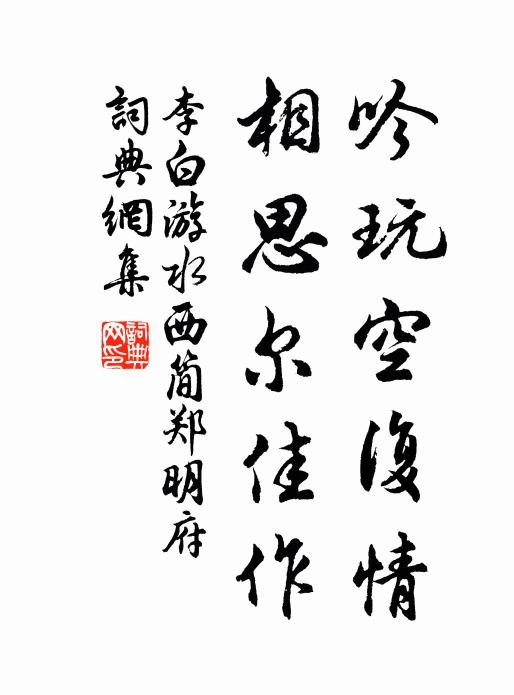 吟玩空復情
相思尔佳作
李白游水西简郑明府
詞典網集
詞典網印